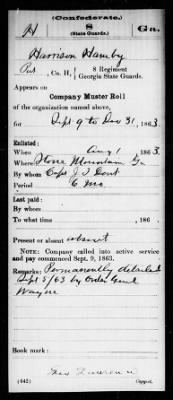 (Confederate.)
H 8 Ga.
(State Guards.)
Harrison Hamby
Pvt, Co. H, 8 Regiment
Georgia State Guards.
Appears on
Company Muster Roll
of the organization named above,
for Sept 9 to Dec 31, 1863.
Enlisted:
When Aug 1, 1863.
Where Stone Mountain Ga
By whom Capt J. T. Dent
Period 6 Mo
Last paid:
By whom
To what time , 186 .
Present or absent absent
NOTE: Company called into active service
and pay commenced Sept. 9, 1863.
Remarks: Permanently detailed
Sept 5/63 by Order Genl
Wayne
Book mark:
(642) Copyist.